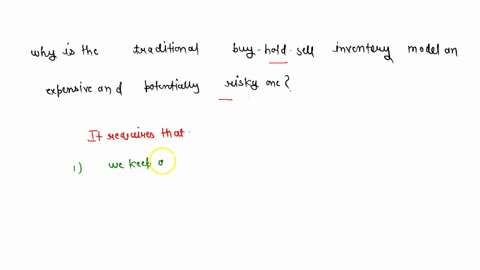 why is the traditional buy-hold-sell inventory model an
expensive and potentially risky one?
It requires that-
1) we keep a